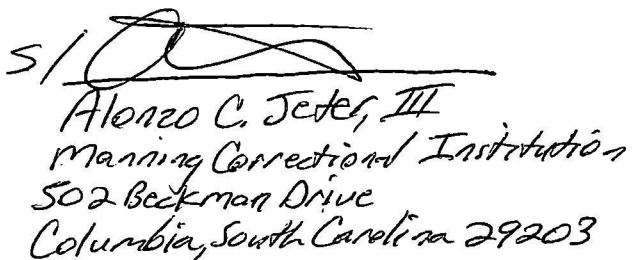 S/
Alonzo C. Jeter, III
Manning Correctional Institution
502 Beckman Drive
Columbia, South Carolina 29203